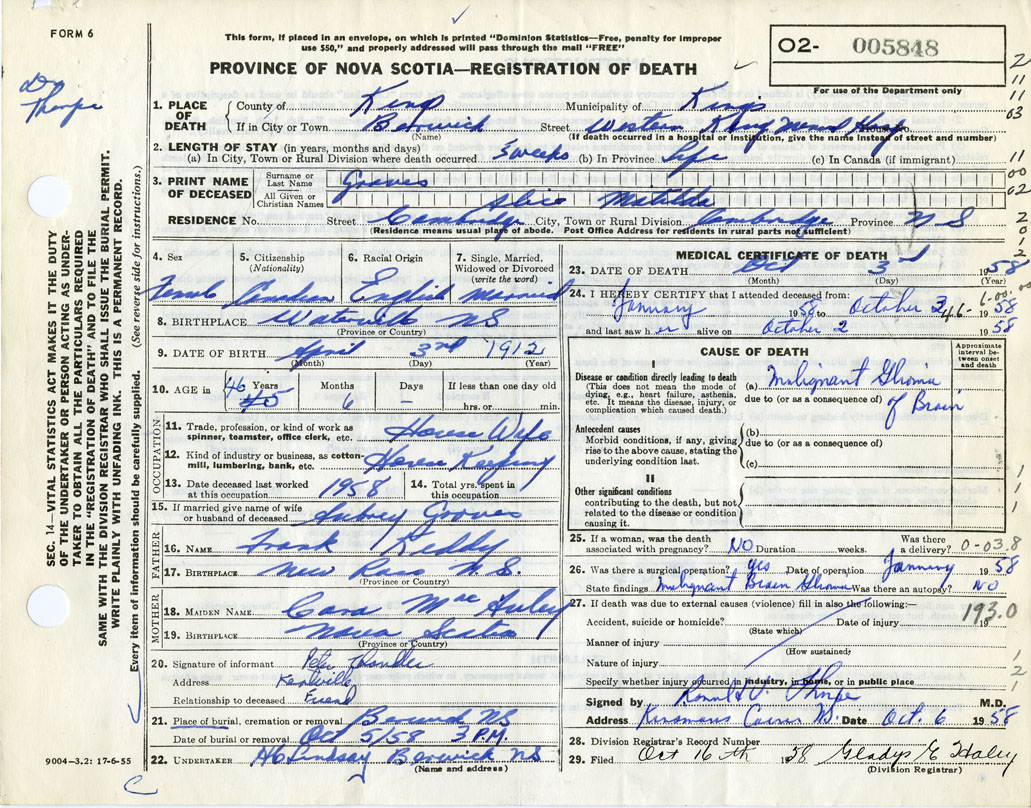 FORM 6
Dr Thorpe
This form, if placed in an envelope, on which is printed "Dominion Statistics—Free, penalty for improper
use $50," and properly addressed will pass through the mail "FREE"
PROVINCE OF NOVA SCOTIA—REGISTRATION OF DEATH
O2- 005848
For use of the Department only
1. PLACE OF DEATH
County of Kings Municipality of Kings
If in City or Town Berwick Street Western Kings Mem Hosp House No.
(Name) (If death occurred in a hospital or institution, give the name instead of street and number)
2. LENGTH OF STAY (in years, months and days)
(a) In City, Town or Rural Division where death occurred 5 weeks (b) In Province Life (c) In Canada (if immigrant)
3. PRINT NAME OF DECEASED
Surname or Last Name Graves
All Given or Christian Names Alice Matilda
RESIDENCE No. Street Cambridge City, Town or Rural Division Cambridge Province N S
(Residence means usual place of abode. Post Office Address for residents in rural parts not sufficient)
4. Sex 5. Citizenship (Nationality) 6. Racial Origin 7. Single, Married, Widowed or Divorced (write the word)
Female Canadian English Married
8. BIRTHPLACE Waterville NS
(Province or Country)
9. DATE OF BIRTH April 3rd 1912
(Month) (Day) (Year)
10. AGE in 46 Years 45 Months 6 Days – If less than one day old hrs. or min.
OCCUPATION
11. Trade, profession, or kind of work as spinner, teamster, office clerk, etc. House Wife
12. Kind of industry or business, as cotton-mill, lumbering, bank, etc. House Keeping
13. Date deceased last worked at this occupation 1958 14. Total yrs. spent in this occupation
15. If married give name of wife or husband of deceased Aubrey Graves
FATHER
16. NAME Frank Keddy
17. BIRTHPLACE New Ross N.S.
(Province or Country)
MOTHER
18. MAIDEN NAME Cora Mac
19. BIRTHPLACE Nova Scotia
(Province or Country)
20. Signature of informant Peter
Address Kentville
Relationship to deceased Friend
21. Place of burial, cremation or removal Berwick NS
Date of burial or removal Oct 5/58 3 P.M.
22. UNDERTAKER H C Lindsay Berwick NS
(Name and address)
9004—3.2: 17-6-55
MEDICAL CERTIFICATE OF DEATH
23. DATE OF DEATH Oct 3rd 1958
(Month) (Day) (Year)
24. I HEREBY CERTIFY that I attended deceased from:
January 1958 to October 3 1958
46-
and last saw her alive on October 2 1958
CAUSE OF DEATH
Approximate interval between onset and death
I
Disease or condition directly leading to death
(This does not mean the mode of dying, e.g., heart failure, asthenia, etc. It means the disease, injury, or complication which caused death.)
(a) Malignant Glioma
due to (or as a consequence of) of Brain
Antecedent causes
Morbid conditions, if any, giving rise to the above cause, stating the underlying condition last.
(b)
due to (or as a consequence of)
(c)
II
Other significant conditions
contributing to the death, but not related to the disease or condition causing it.
25. If a woman, was the death associated with pregnancy? NO Duration weeks. Was there a delivery? 0-03.8
26. Was there a surgical operation? yes Date of operation January 1958
State findings Malignant Brain Glioma Was there an autopsy? NO
27. If death was due to external causes (violence) fill in also the following:—
193.0
Accident, suicide or homicide? Date of injury 19
(State which)
Manner of injury
(How sustained)
Nature of injury
Specify whether injury occurred in industry, in home, or in public place
Signed by Ronald V. Thorpe M.D.
Address Kinsmans Corner NS Date Oct. 6 1958
28. Division Registrar's Record Number
29. Filed Oct 16th 1958 Gladys E Haley
(Division Registrar)
SEC. 14—VITAL STATISTICS ACT MAKES IT THE DUTY
OF THE UNDERTAKER OR PERSON ACTING AS UNDER-
TAKER TO OBTAIN ALL THE PARTICULARS REQUIRED
IN THE "REGISTRATION OF DEATH" AND TO FILE THE
SAME WITH THE DIVISION REGISTRAR WHO SHALL ISSUE THE BURIAL PERMIT.
WRITE PLAINLY WITH UNFADING INK. THIS IS A PERMANENT RECORD.
Every item of information should be carefully supplied. (See reverse side for instructions.)